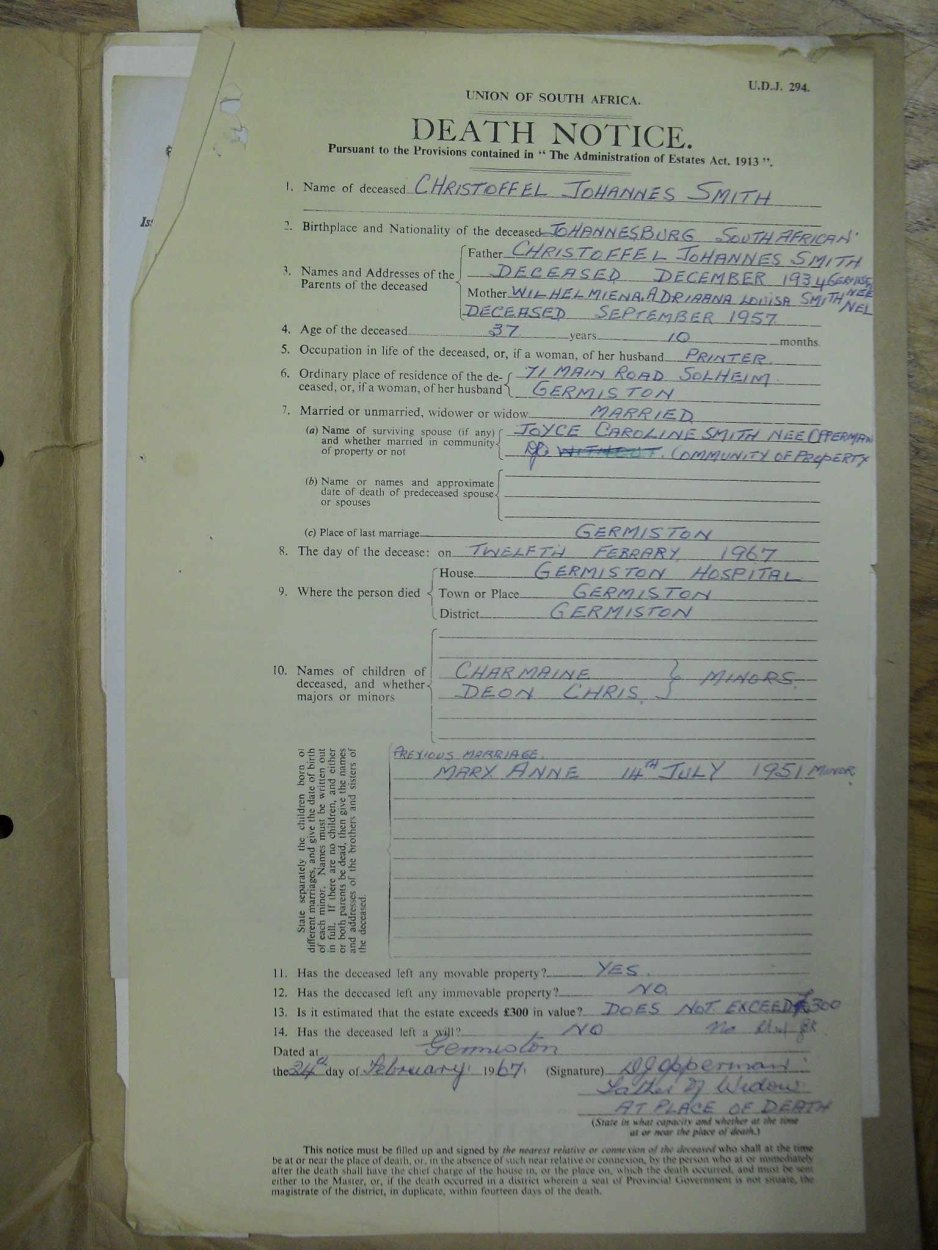 U.D.J. 294.
UNION OF SOUTH AFRICA.
DEATH NOTICE.
Pursuant to the Provisions contained in “ The Administration of Estates Act, 1913 ”.
1. Name of deceased CHRISTOFFEL JOHANNES SMITH
2. Birthplace and Nationality of the deceased JOHANNESBURG SOUTH AFRICAN
3. Names and Addresses of the Parents of the deceased
Father CHRISTOFFEL JOHANNES SMITH
DECEASED DECEMBER 1934
Mother WILHELMIENA, ADRIAANA LOUISA SMITH NEE NEL
DECEASED SEPTEMBER 1957
4. Age of the deceased 37 years 10 months.
5. Occupation in life of the deceased, or, if a woman, of her husband PRINTER.
6. Ordinary place of residence of the deceased, or, if a woman, of her husband
71 MAIN ROAD SOLHEIM.
GERMISTON
7. Married or unmarried, widower or widow MARRIED
(a) Name of surviving spouse (if any) and whether married in community of property or not
JOYCE CAROLINE SMITH NEE OPPERMAN
WITHOUT. COMMUNITY OF PROPERTY
(b) Name or names and approximate date of death of predeceased spouse or spouses
(c) Place of last marriage GERMISTON
8. The day of the decease: on TWELFTH FEBRARY 1967
9. Where the person died
House GERMISTON HOSPITAL
Town or Place GERMISTON
District GERMISTON
10. Names of children of deceased, and whether majors or minors
CHARMAINE
DEON CHRIS.
MINORS
State separately the children born of
different marriages, and give the date of birth
of each minor. Names must be written out
in full. If there are no children, and either
or both parents be dead, then give the names
and addresses of the brothers and sisters of
the deceased.
PREVIOUS MARRIAGE.
MARY ANNE 14TH JULY 1951 MINOR
11. Has the deceased left any movable property? YES.
12. Has the deceased left any immovable property? NO
13. Is it estimated that the estate exceeds £300 in value? DOES NOT EXCEED £300
14. Has the deceased left a will? NO
Dated at Germiston
the 24th day of February 1967. (Signature) DJ Opperman
Father of Widow
AT PLACE OF DEATH
(State in what capacity and whether at the time
at or near the place of death.)
This notice must be filled up and signed by the nearest relative or connexion of the deceased who shall at the time
be at or near the place of death, or, in the absence of such near relative or connexion, by the person who at or immediately
after the death shall have the chief charge of the house in, or the place on, which the death occurred, and must be sent
either to the Master, or, if the death occurred in a district wherein a seat of Provincial Government is not situate, the
magistrate of the district, in duplicate, within fourteen days of the death.